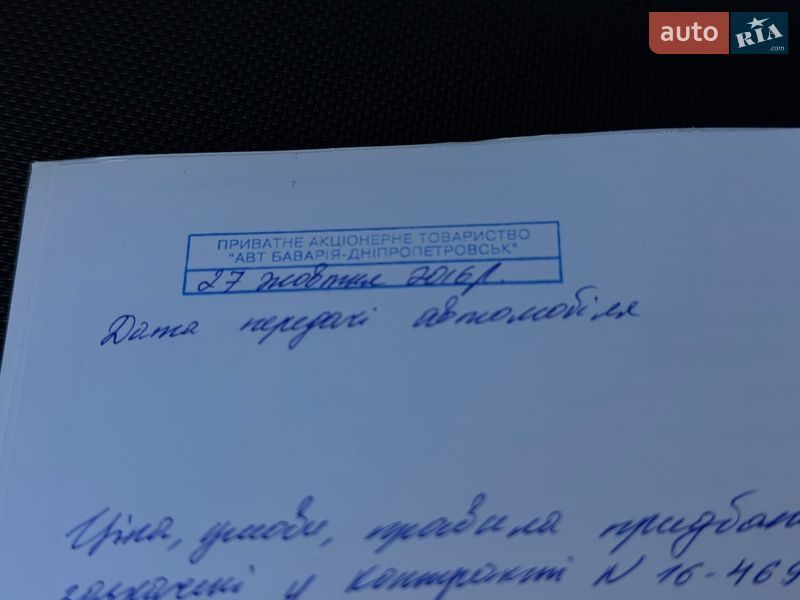 auto RIA .com
ПРИВАТНЕ АКЦІОНЕРНЕ ТОВАРИСТВО
"АВТ БАВАРІЯ-ДНІПРОПЕТРОВСЬК"
27 жовтня 2016 р.
Дата передачі автомобіля
Ціна, умови, правила придбан
зазначені у контракті N 16-469